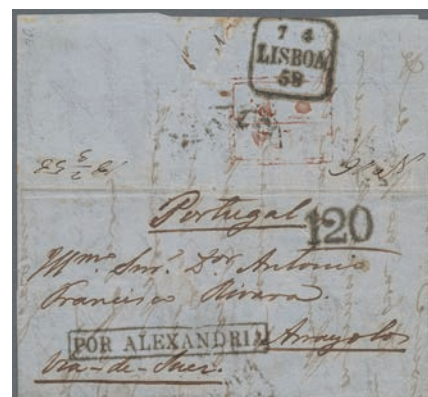 7 4
LISBOA
58
Portugal
120
Illmo Snr. Dor Antonio
Francisco Rivara.
POR ALEXANDRIA
Arrayolos
Via-de-Suez.